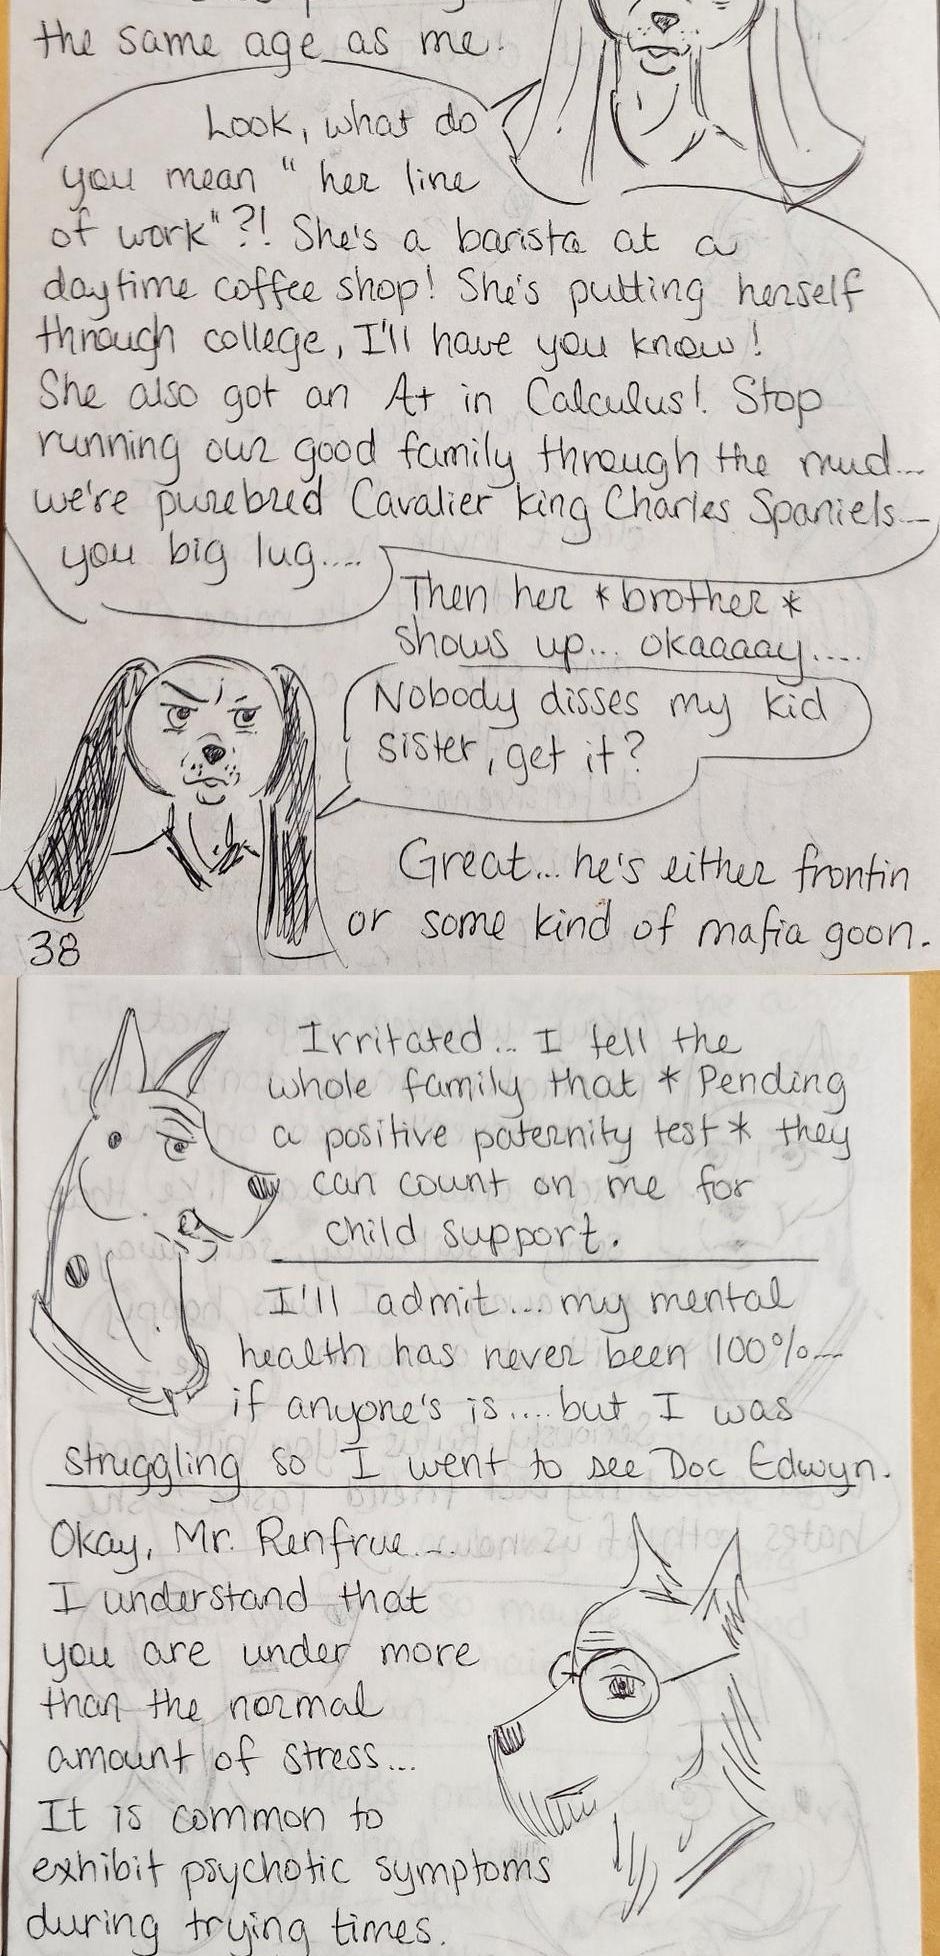 the same age as me.
Look, what do
you mean "her line
of work"?! She's a barista at a
daytime coffee shop! She's putting herself
through college, I'll have you know!
She also got an A+ in Calculus! Stop
running our good family through the mud...
we're purebred Cavalier King Charles Spaniels...
you big lug....
Then her *brother*
shows up... okaaaay....
Nobody disses my kid
sister, get it?
Great... he's either frontin
or some kind of mafia goon.
38
Irritated... I tell the
whole family that *Pending
a positive paternity test* they
can count on me for
child support.
I'll admit... my mental
health has never been 100%...
if anyone's is.... but I was
struggling so I went to see Doc Edwyn.
Okay, Mr. Renfrue....
I understand that
you are under more
than the normal
amount of stress...
It is common to
exhibit psychotic symptoms
during trying times.